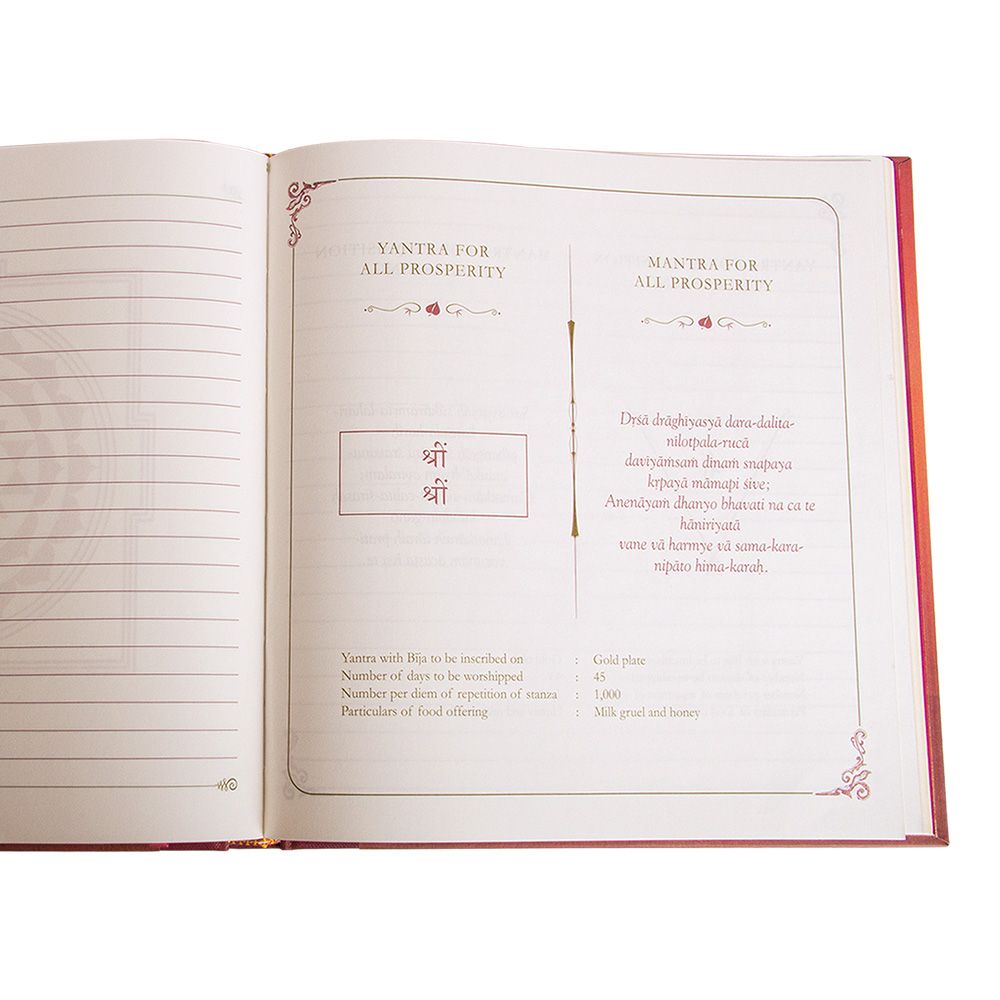 YANTRA FOR
ALL PROSPERITY
श्रीं
श्रीं
MANTRA FOR
ALL PROSPERITY
Dṛśā drāghīyasyā dara-dalita-
nilotpala-rucā
daviyāmsaṁ dinaṁ snapaya
kṛpayā māmapi śive;
Anenāyaṁ dhanyo bhavati na ca te
hāniriyatā
vane vā harmye vā sama-kara-
nipāto hima-karaḥ.
Yantra with Bīja to be inscribed on : Gold plate
Number of days to be worshipped : 45
Number per diem of repetition of stanza : 1,000
Particulars of food offering : Milk gruel and honey